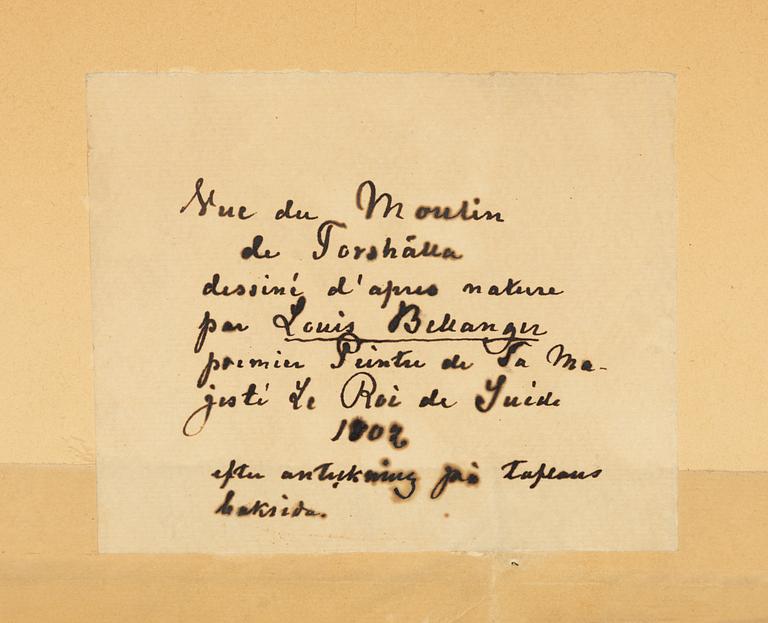 Vue du Moulin
de Torshälla
dessiné d'apres nature
par Louis Bellanger
premier Peintre de Sa Ma-
jesté Le Roi de Suède
1802
efter anteckning på taflans
baksida.